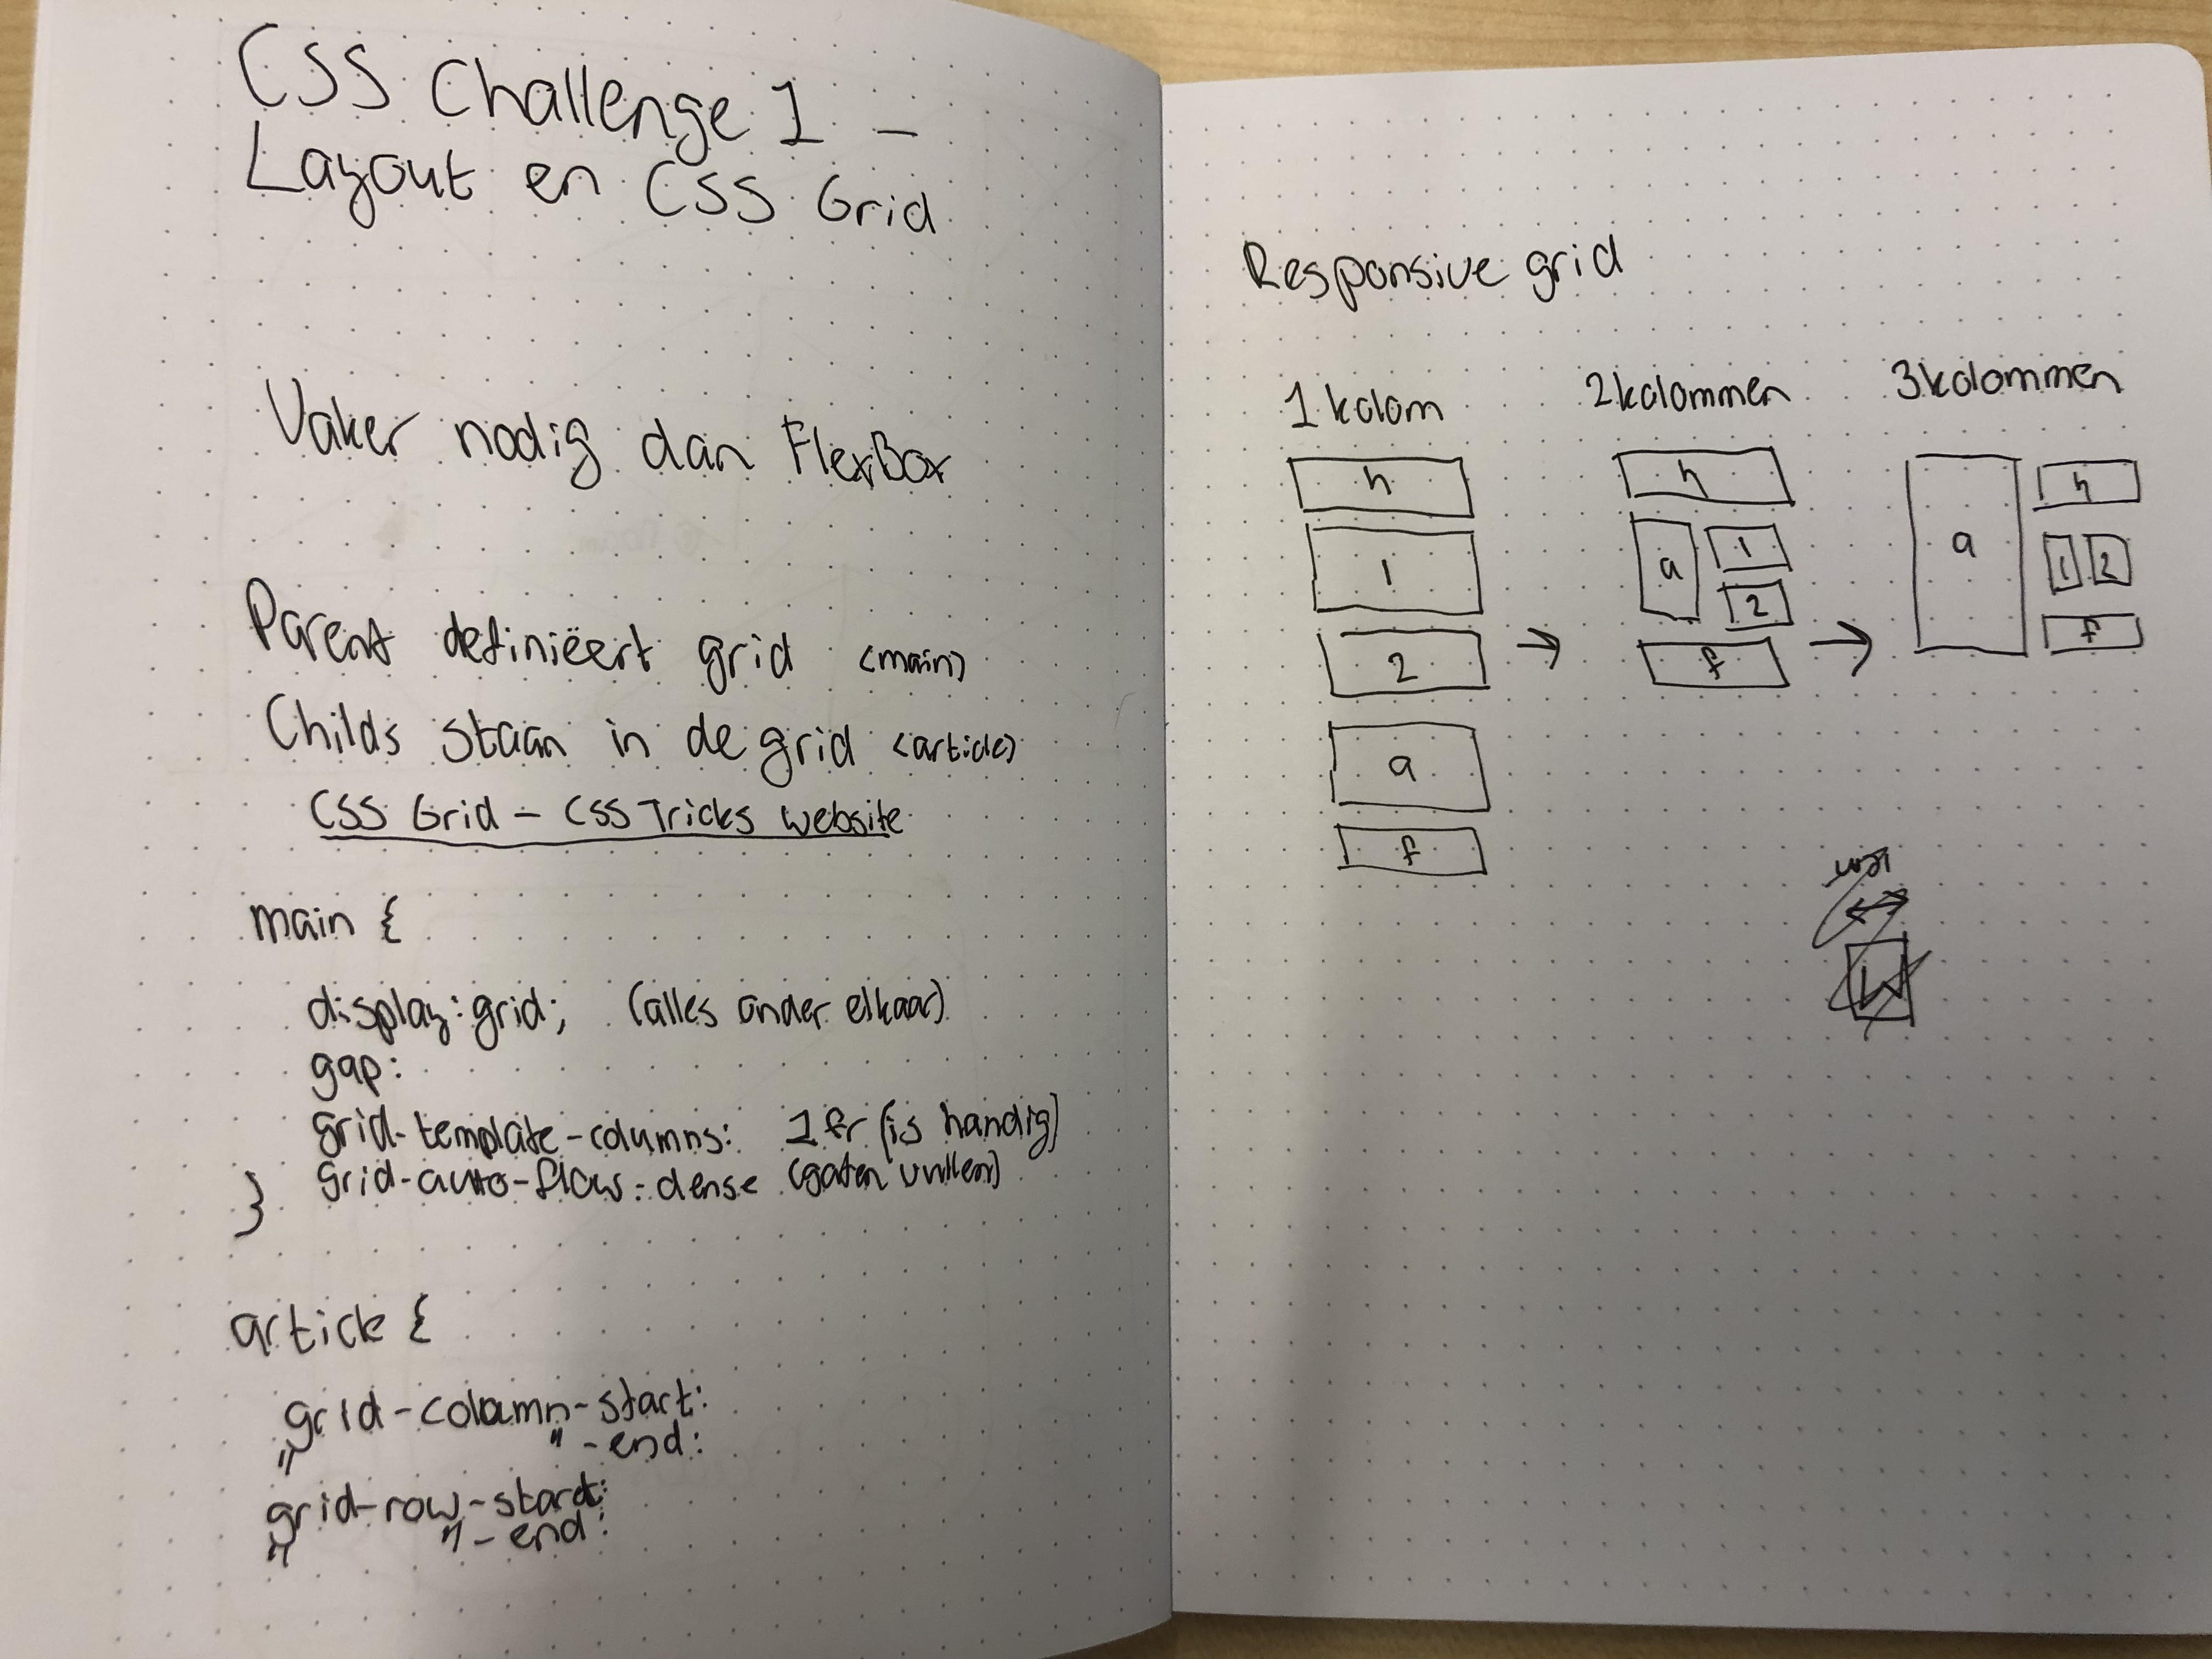 CSS Challenge 1 -
Layout en CSS Grid
Vaker nodig dan FlexBox
Parent definiëert grid <main>
Childs staan in de grid <article>
CSS Grid - CSS Tricks website
main {
display: grid; (alles onder elkaar)
gap:
grid-template-columns: 1fr (is handig)
grid-auto-flow: dense (gaten vullen)
}
article {
grid-column-start:
" " -end:
grid-row-start:
" " -end:
Responsive grid
1 kolom
h
1
2
a
f
→
2 kolommen
h
a 1
2
f
→
3 kolommen
a h
1 2
f